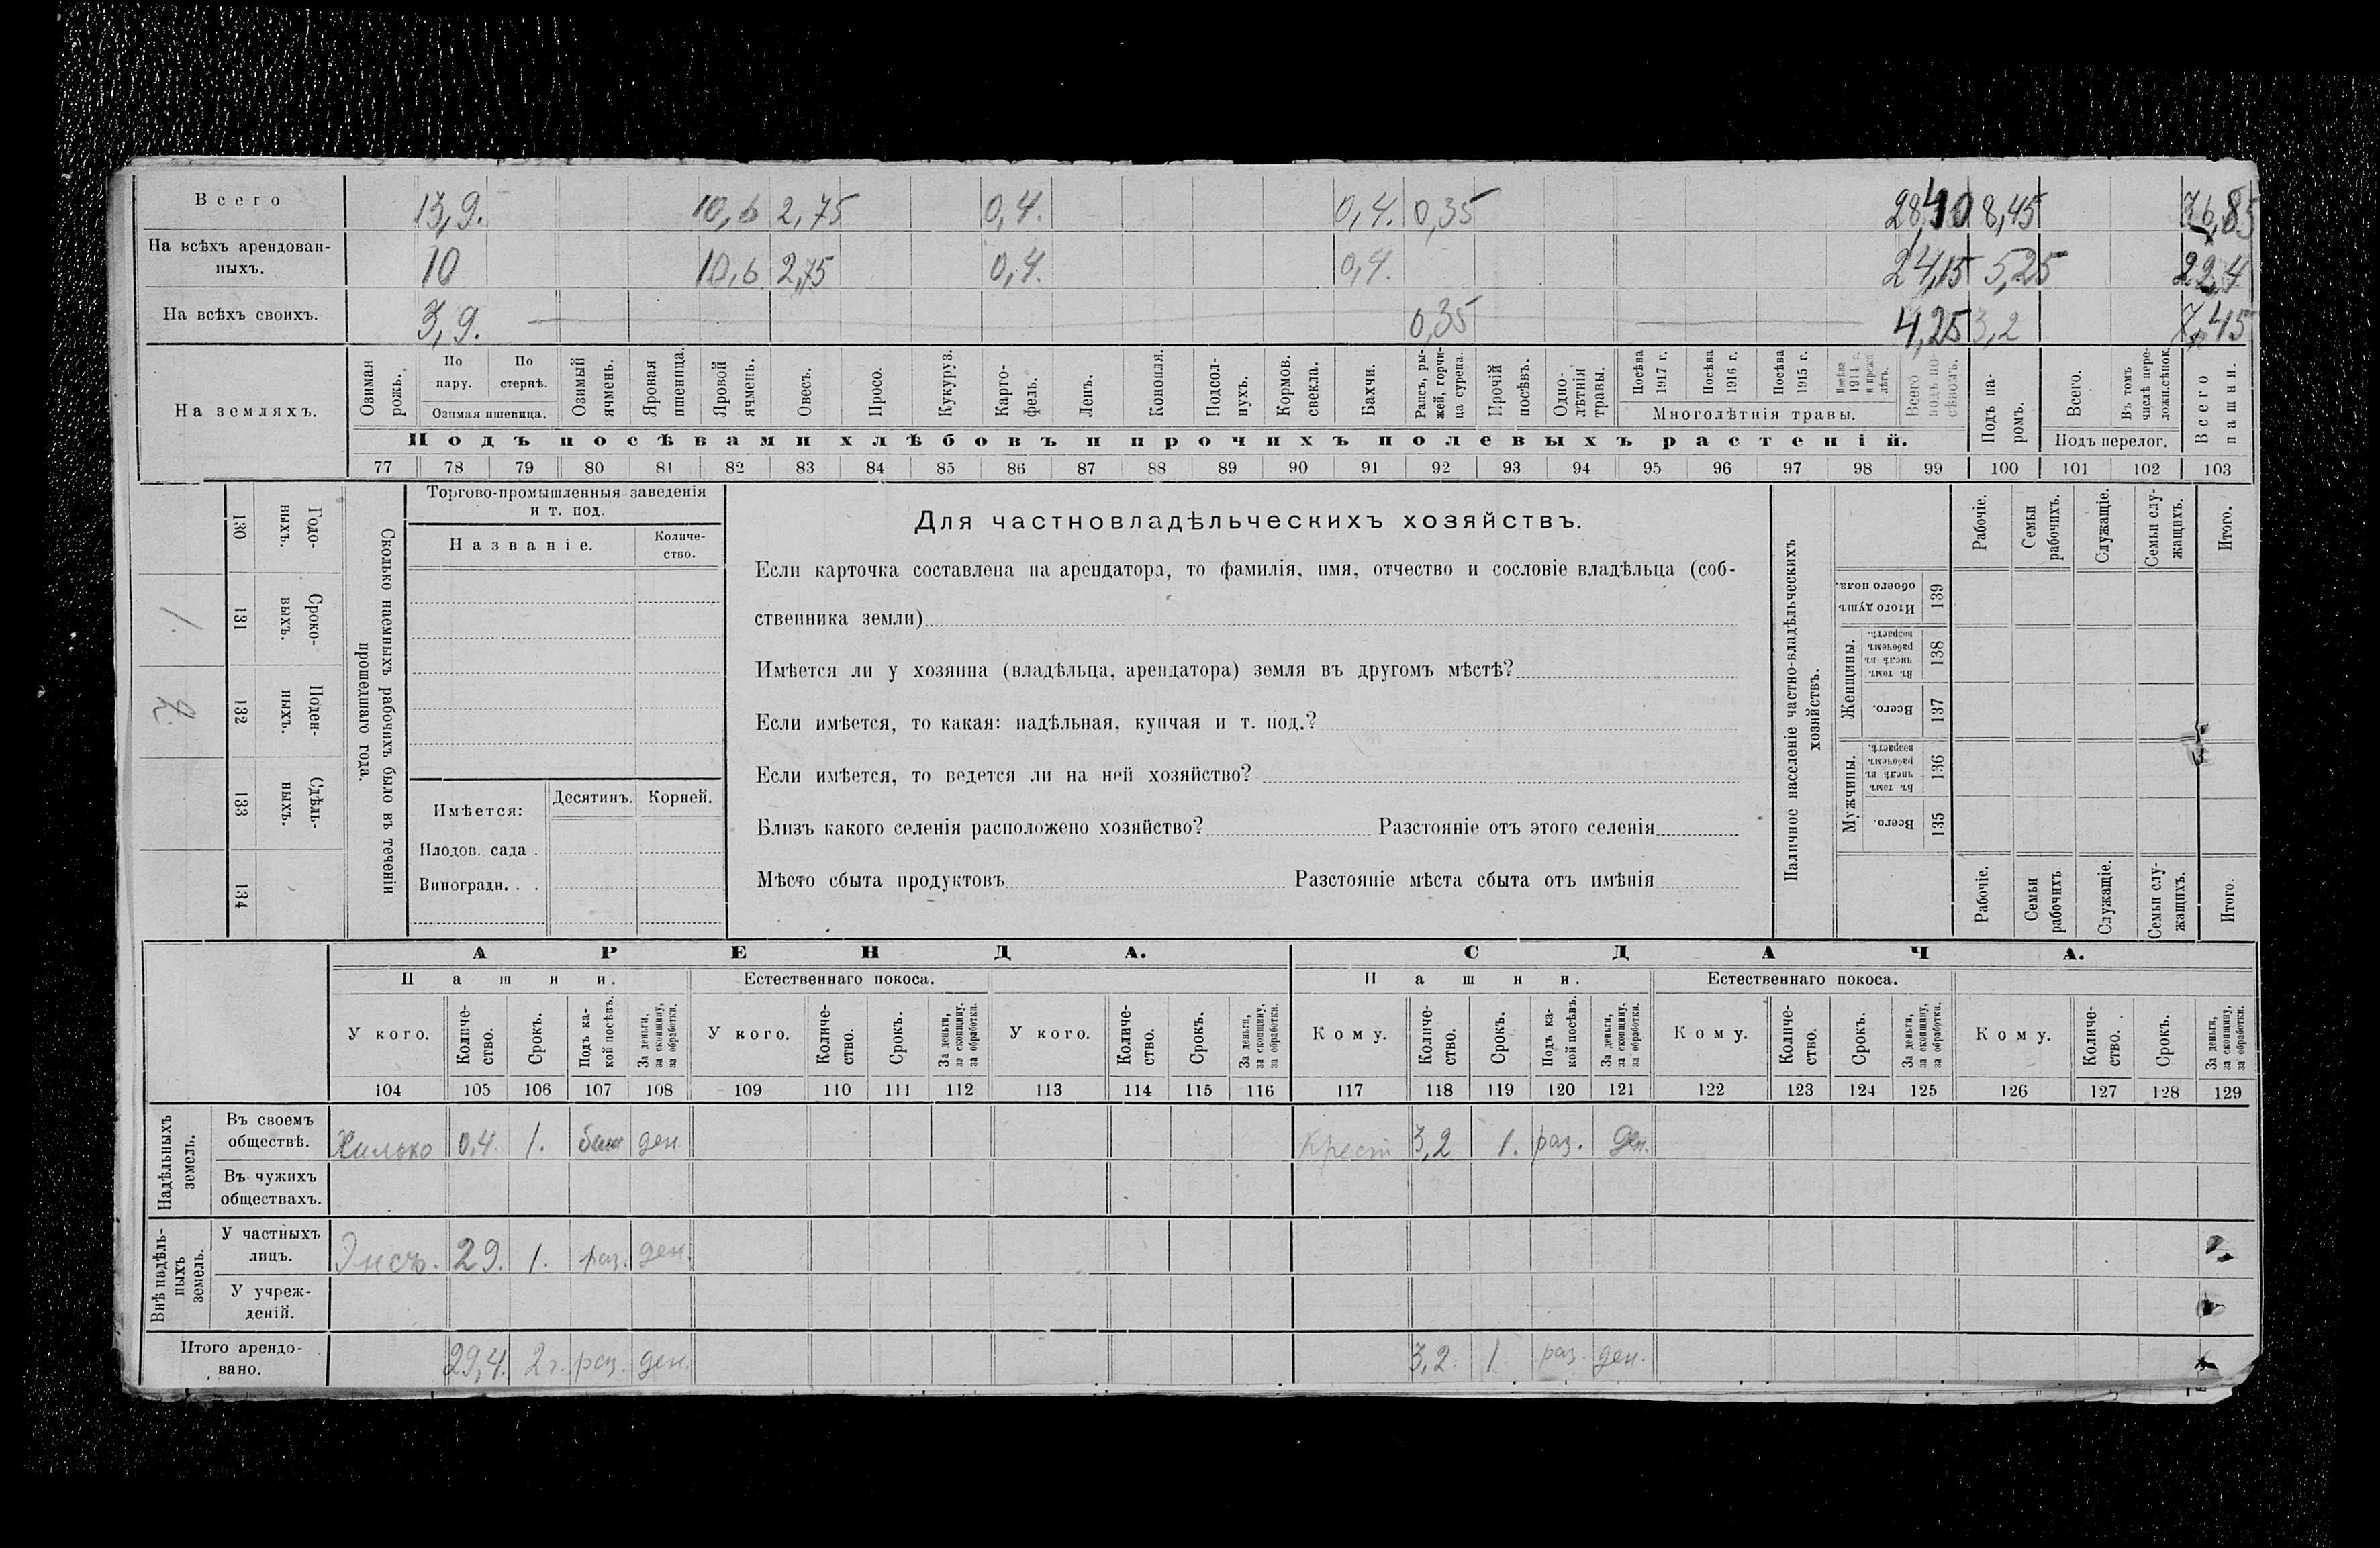 Всего 13,9. 10,6 2,75 0,4. 0,4. 0,35 28,40 8,45 36,85
На всѣхъ арендован-
ныхъ. 10 10,6 2,75 0,4. 0,4. 24,15 5,25
На всѣхъ своихъ. 3,9. 0,35 4,25 3,2 7,45
На земляхъ.
Озимая рожь.
По пару.
По стернѣ.
Озимая пшеница.
Озимый ячмень.
Яровая пшеница.
Яровой ячмень.
Овесъ.
Просо.
Кукуруз.
Карто-
фель.
Ленъ.
Конопля.
Подсол-
нухъ.
Кормов. свекла.
Бахчи.
Рапсъ, ры-
жей, горчи-
ца сурепа.
Прочій посѣвъ.
Одно-
лѣтнія травы.
Посѣва 1917 г.
Посѣва 1916 г.
Посѣва 1915 г.
Посѣва 1914 г. и прежн лѣтъ.
Многолѣтнія травы.
Всего подъ по-
сѣвомъ.
Подъ па-
ромъ.
Всего.
Въ томъ числѣ пере-
ложн.сѣнок.
Подъ перелог.
Всего пашни.
Подъ посѣвами хлѣбовъ и прочихъ полевыхъ растеній.
77 78 79 80 81 82 83 84 85 86 87 88 89 90 91 92 93 94 95 96 97 98 99 100 101 102 103
Сколько наемныхъ рабочихъ было въ теченіи
прошедшаго года.
Годо-
выхъ.
130
Сроко-
выхъ.
131
1.
Поден-
ныхъ.
132
2.
Сдѣль-
ныхъ.
133
134
Торгово-промышленныя заведенія
и т. под.
Названіе.
Количе-
ство.
Имѣется:
Десятинъ.
Корней.
Плодов. сада .
Виноградн. . .
Для частновладѣльческихъ хозяйствъ.
Если карточка составлена на арендатора, то фамилія, имя, отчество и сословіе владѣльца (соб-
ственника земли)
Имѣется ли у хозяина (владѣльца, арендатора) земля въ другомъ мѣстѣ?
Если имѣется, то какая: надѣльная, купчая и т. под.?
Если имѣется, то ведется ли на ней хозяйство?
Близъ какого селенія расположено хозяйство? Разстояніе отъ этого селенія
Мѣсто сбыта продуктовъ Разстояніе мѣста сбыта отъ имѣнія
Наличное населеніе частно-владѣльческихъ
хозяйствъ.
Рабочіе.
Семьи рабочихъ.
Служащіе.
Семьи слу-
жащихъ.
Итого.
Итого душъ обоего пола.
139
Женщины.
Въ томъ числѣ въ рабочемъ возрастѣ.
138
Всего.
137
Мужчины.
Въ томъ числѣ въ рабочемъ возрастѣ.
136
Всего.
135
Рабочіе.
Семьи рабочихъ.
Служащіе.
Семьи слу-
жащихъ.
Итого.
АРЕНДА. СДАЧА.
Пашни. Естественнаго покоса. Пашни. Естественнаго покоса.
У кого.
Количе-
ство.
Срокъ.
Подъ ка-
кой посѣвъ.
За деньги, за скопщину, за обработки.
У кого.
Количе-
ство.
Срокъ.
За деньги, за скопщину, за обработки.
У кого.
Количе-
ство.
Срокъ.
За деньги, за скопщину, за обработки.
Кому.
Количе-
ство.
Срокъ.
Подъ ка-
кой посѣвъ.
За деньги, за скопщину, за обработки.
Кому.
Количе-
ство.
Срокъ.
За деньги, за скопщину, за обработки.
Кому.
Количе-
ство.
Срокъ.
За деньги, за скопщину, за обработки.
104 105 106 107 108 109 110 111 112 113 114 115 116 117 118 119 120 121 122 123 124 125 126 127 128 129
Надѣльныхъ земель.
Въ своемъ
обществѣ. Хилько 0,4. 1. ден Крест 3,2 1. раз. ден.
Въ чужихъ
обществахъ.
Внѣ надѣль-
ныхъ земель.
У частныхъ
лицъ. 29. 1. раз. ден.
У учреж-
деній.
Итого арендо-
вано. 29,4. 2 г. раз. ден. 3,2. 1 раз. ден.